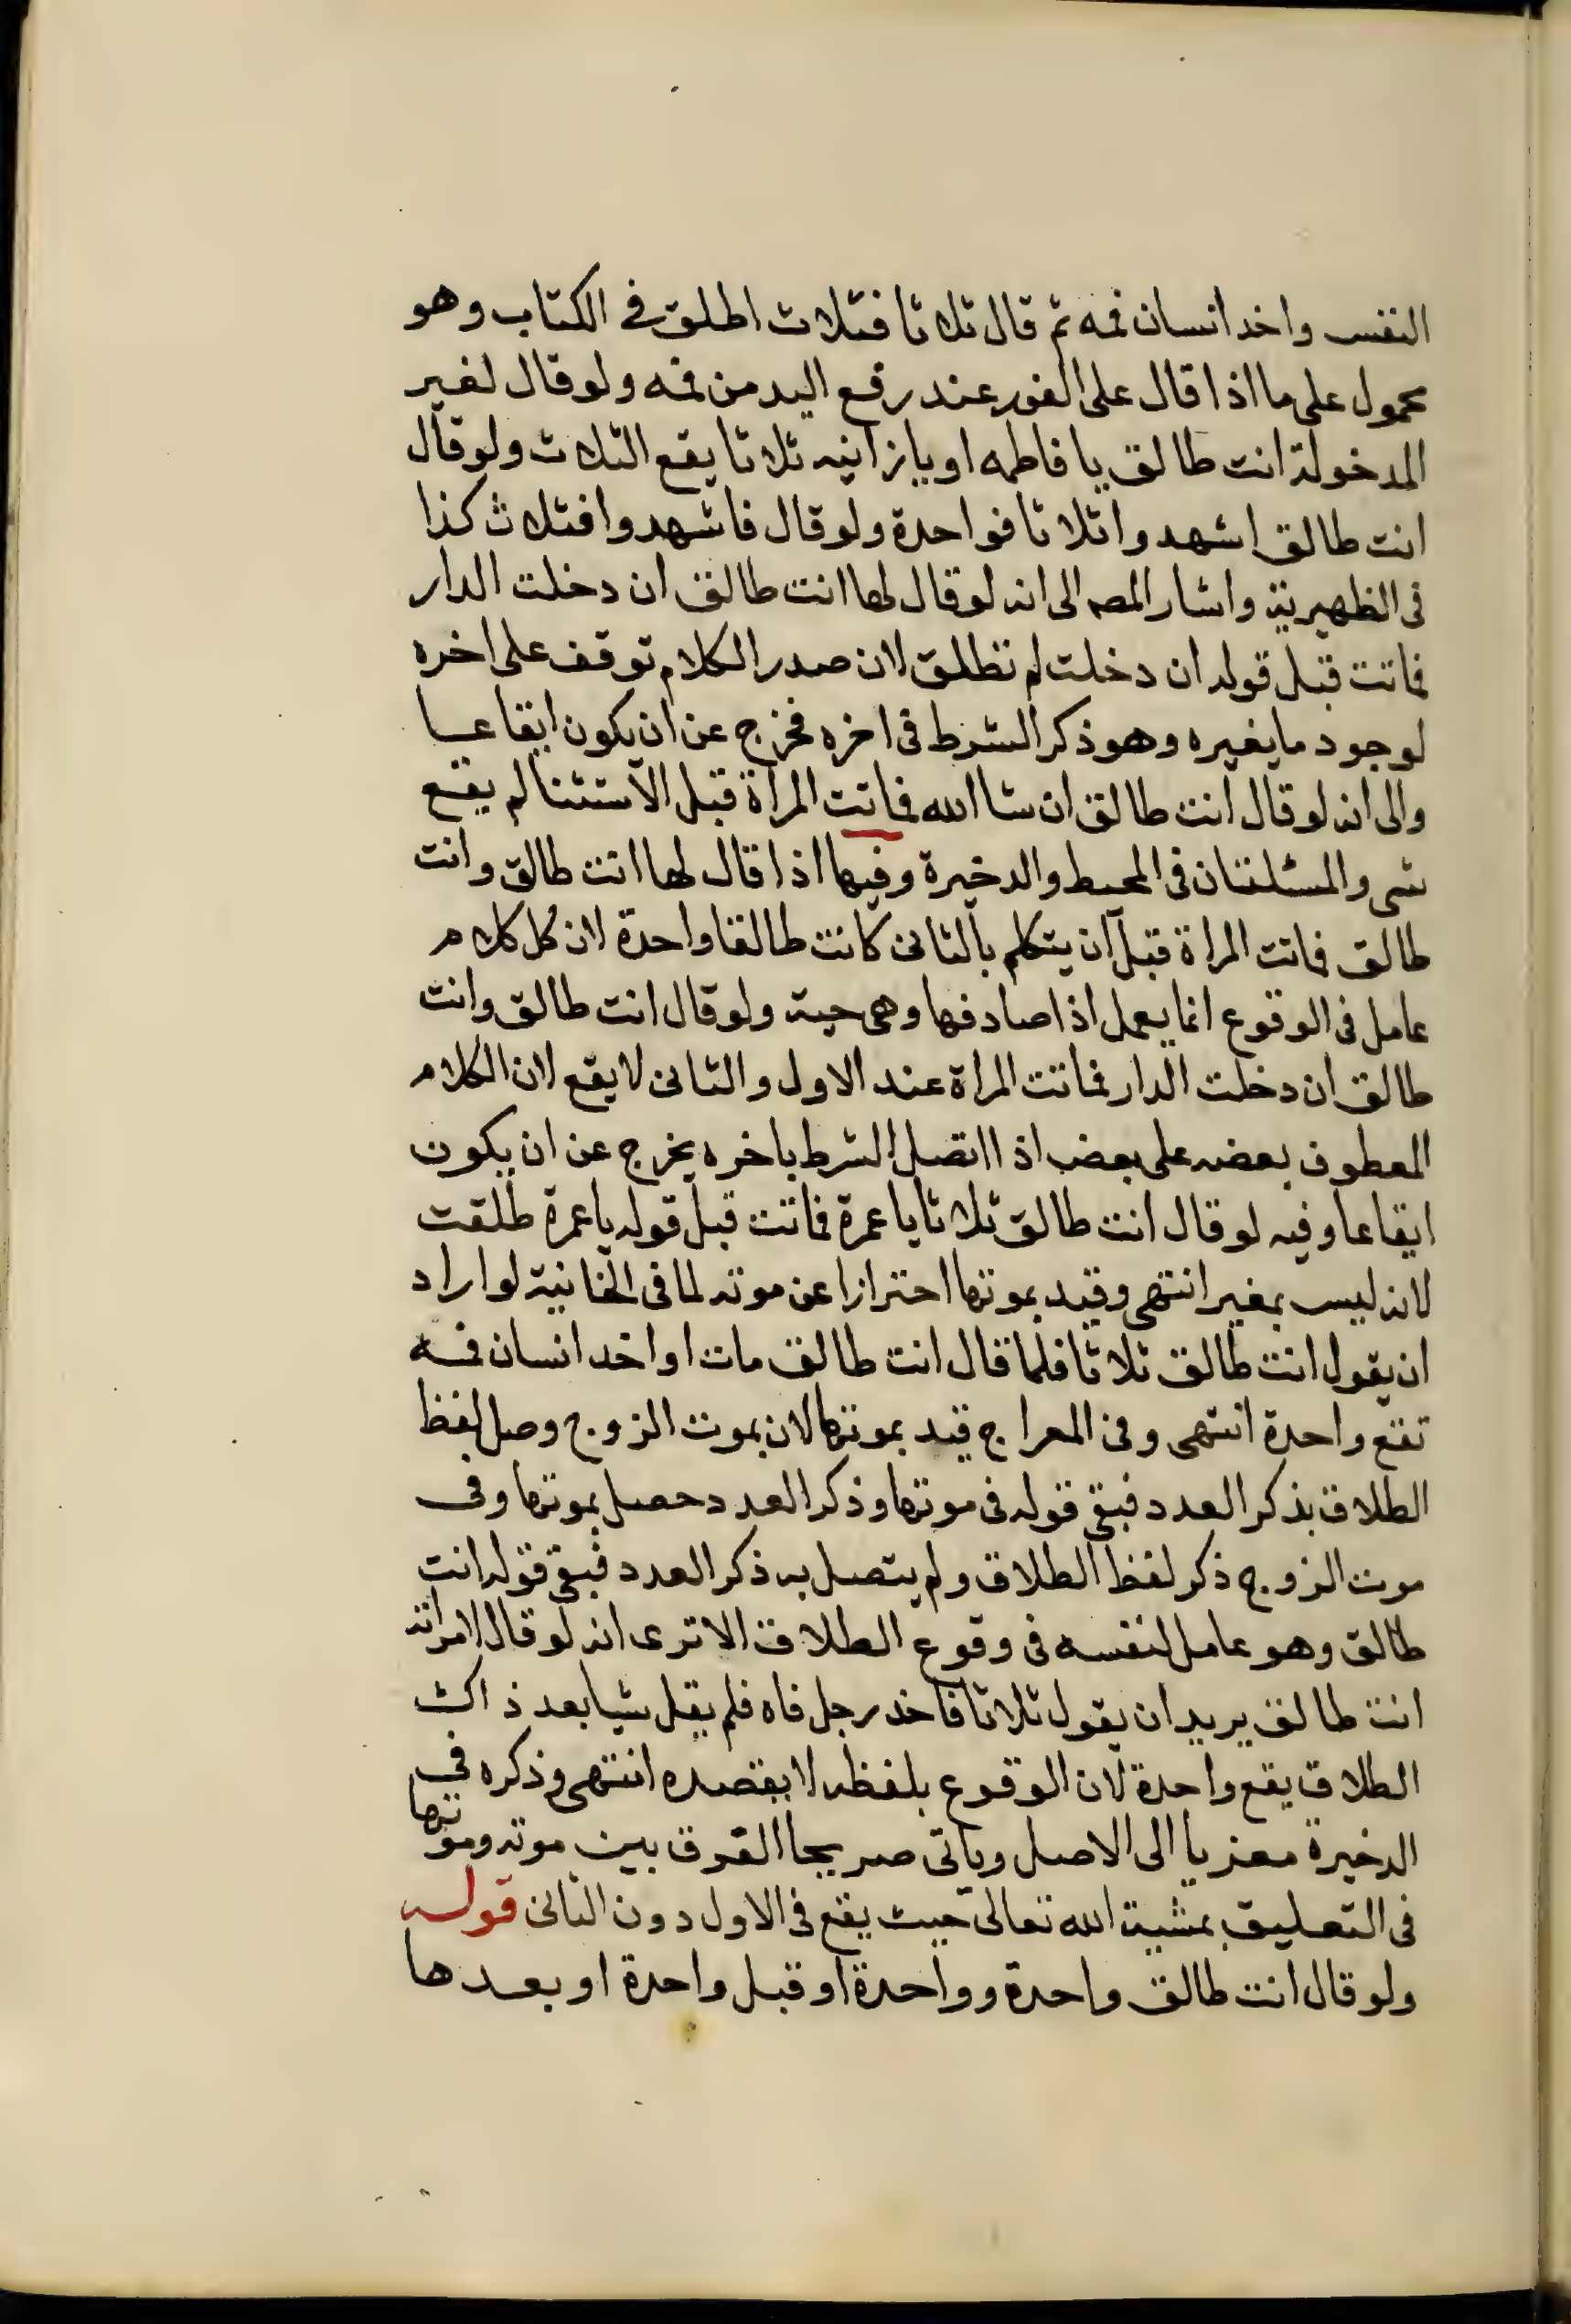 النفس واخد انسان فمه ثم قال ثلاثا فثلاث اطلق في الكتاب وهو
محمول على ما اذا قال على الفور عند رفع اليد من فمه ولو قال لغير
المدخولة انت طالق يا فاطمه او يا زانيه ثلاثا يقع الثلاث ولو قال
انت طالق اشهدوا ثلاثا فواحدة ولو قال فاشهدوا فثلاث كذا
فى الظهيرية واشار المصـ الى انه لو قال لها انت طالق ان دخلت الدار
فماتت قبل قوله ان دخلت لم تطلق لان صدر الكلام توقف على اخره
لوجود ما يغيره وهو ذكر الشرط فى اخره فخرج عن ان يكون ايقاعـا
والى انه لو قال انت طالق ان شا الله فماتت المراة قبل الاستثنا لم يقع
شى والمسئلتان فى المحيط والدخيرة وفيها اذا قال لها انت طالق وانت
طالق فماتت المراة قبل ان يتكلم بالثانى كانت طالقا واحدة لان كل كلام
عامل فى الوقوع انما يعمل اذا صادفها وهى حية ولو قال انت طالق وانت
طالق ان دخلت الدار فماتت المراة عند الاول والثانى لا يقع لان الكلام
المعطوف بعضه على بعض اذا اتصل الشرط باخره يخرج عن ان يكون
ايقاعا وفيه لو قال انت طالق ثلاثا يا عمرة فماتت قبل قوله يا عمرة طلقت
لانه ليس بمغير انتهى وقيد بموتها احترازا عن موته لما فى الخانية لو اراد
ان يقول انت طالق ثلاثا فلما قال انت طالق مات او اخد انسان فمه
تقع واحدة انتهى وفى المعراج قيد بموتها لان بموت الزوج وصل لفظ
الطلاق بذكر العدد فبقى قوله فى موتها وذكر العدد حصل بموتها وفى
موت الزوج ذكر لفظ الطلاق ولم يتصل به ذكر العدد فبقى قوله انت
طالق وهو عامل لنفسه فى وقوع الطلاق الا ترى انه لو قال لامراته
انت طالق يريد ان يقول ثلاثا فاخد رجل فاه فلم يقل شيا بعد ذاك
الطلاق يقع واحدة لان الوقوع بلفظه لا بقصده انتهى وذكره فى
الدخيرة معزيا الى الاصل وياتى صريحا الفرق بين موته وموتها
فى التعليق بمشية الله تعالى حيث يقع فى الاول دون الثانى قوله
ولو قال انت طالق واحدة وواحدة او قبل واحدة او بعدها